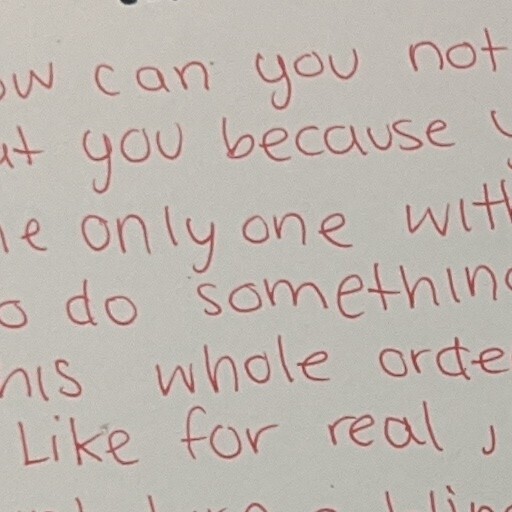 ow can you not
ut you because
le only one with
o do something
his whole orde
Like for real